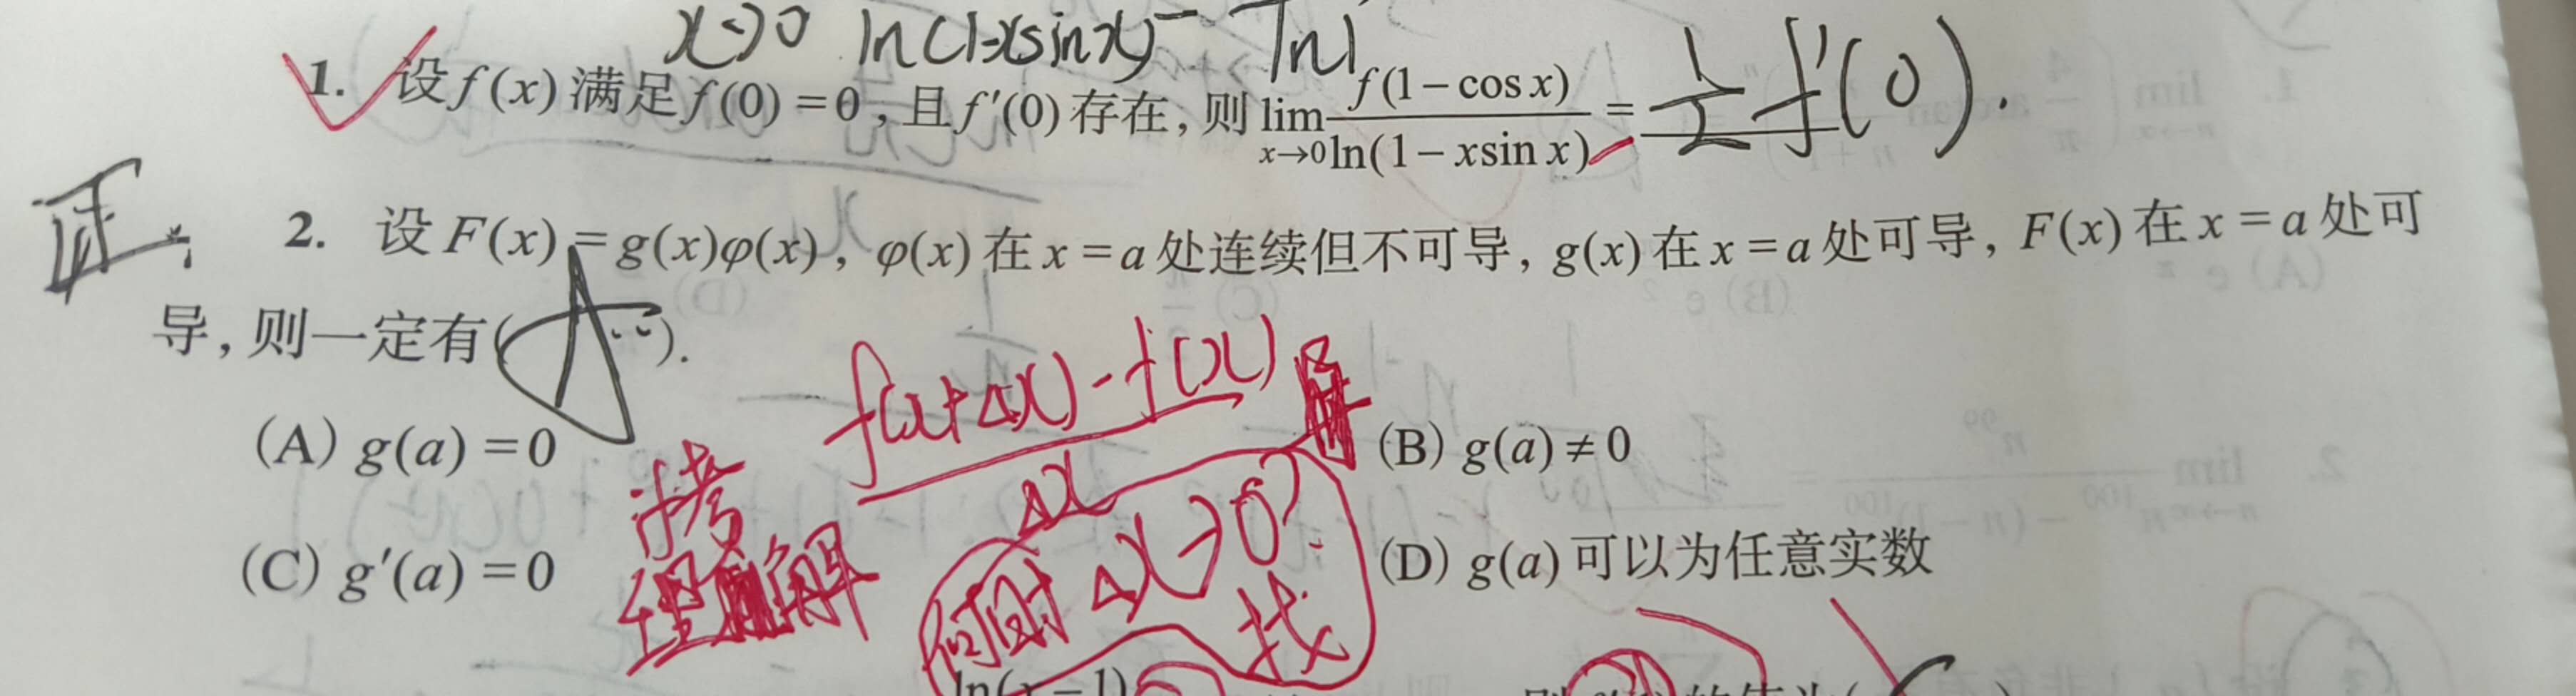 x→0 ln(1-xsinx)- ln1
1. 设f(x)满足f(0)=0,且f′(0)存在,则lim x→0 f(1-cos x)/ln(1-xsin x)= 1/2 f′(0).
2. 设F(x)=g(x)φ(x),φ(x)在x=a处连续但不可导,g(x)在x=a处可导,F(x)在x=a处可
导,则一定有( A ).
f(x+Δx)-f(x)
Δx
(A) g(a)=0 (B) g(a)≠0
考
理解
Δx→0
(C) g′(a)=0 (D) g(a)可以为任意实数
何时
找
ln(x-1)